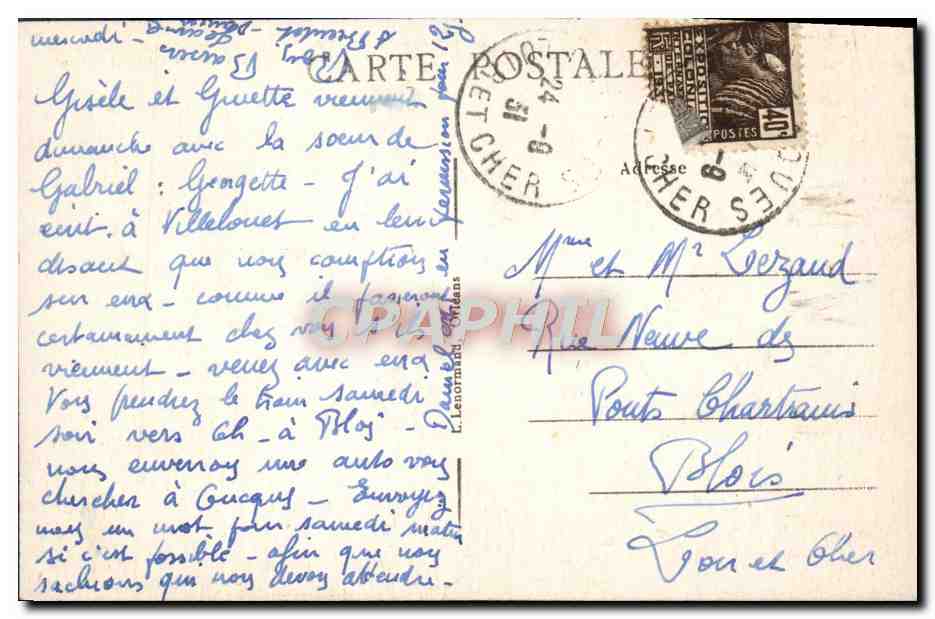 mercredi -
Gisèle et Ginette viennent
dimanche avec la soeur de
Gabriel : Georgette - J'ai
écrit à Villelouet en leur
disant que nous comptions
sur eux - comme ils passeront
certainement chez vous s'ils
viennent - venez avec eux
Vous prendrez le train samedi
soir vers 6h - à Blois -
nous enverrons une auto vous
chercher à Coucques - Envoyez
nous un mot pour samedi matin
si c'est possible - afin que nous
sachions qui nous devons attendre -
Daniel est en permission pour 12 j
Bons Baisers
CARTE POSTALE
Adresse
L. Lenormand, Orléans
24 -9 31
ET CHER
-9
CHER
POSTES
40c
Mme et Mr Lezaud
Rue Neuve des
Ponts Chartrains
Blois
Loir et Cher
CPAPHIL